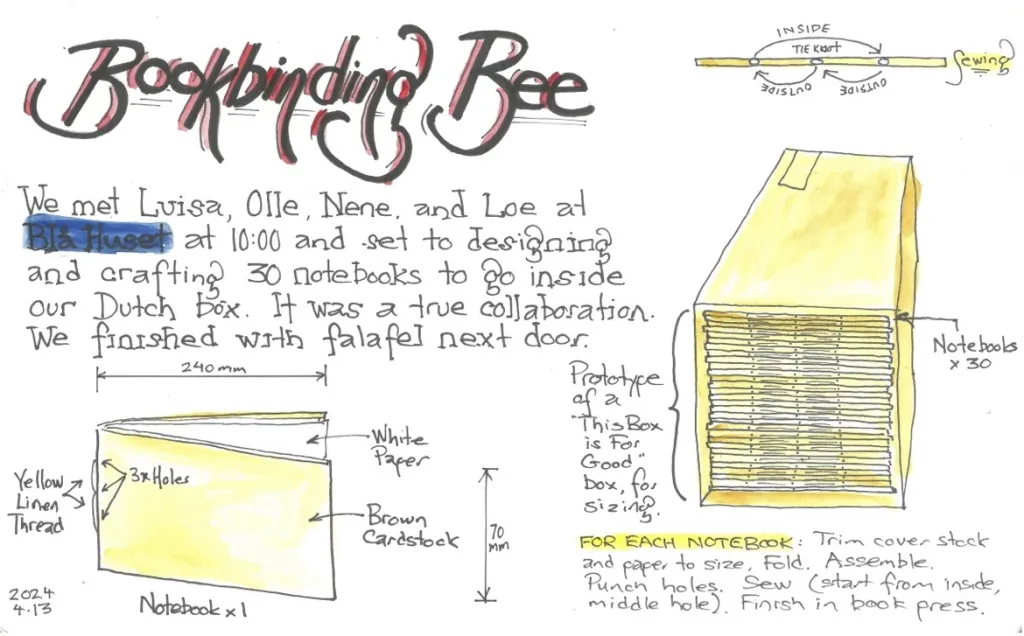 Bookbinding Bee
We met Luisa, Olle, Nene, and Loe at
Blå Huset at 10:00 and set to designing
and crafting 30 notebooks to go inside
our Dutch box. It was a true collaboration.
We finished with falafel next door.
INSIDE
TIE KNOT
OUTSIDE
OUTSIDE
Sewing
240 mm
White
Paper
3x Holes
Yellow
Linen
Thread
Brown
Cardstock
70
mm
2024
4.13
Notebook x 1
Prototype
of a
"This Box
is For
Good"
box, for
sizing.
Notebooks
x 30
FOR EACH NOTEBOOK: Trim cover stock
and paper to size, Fold. Assemble.
Punch holes. Sew (start from inside,
middle hole). Finish in book press.